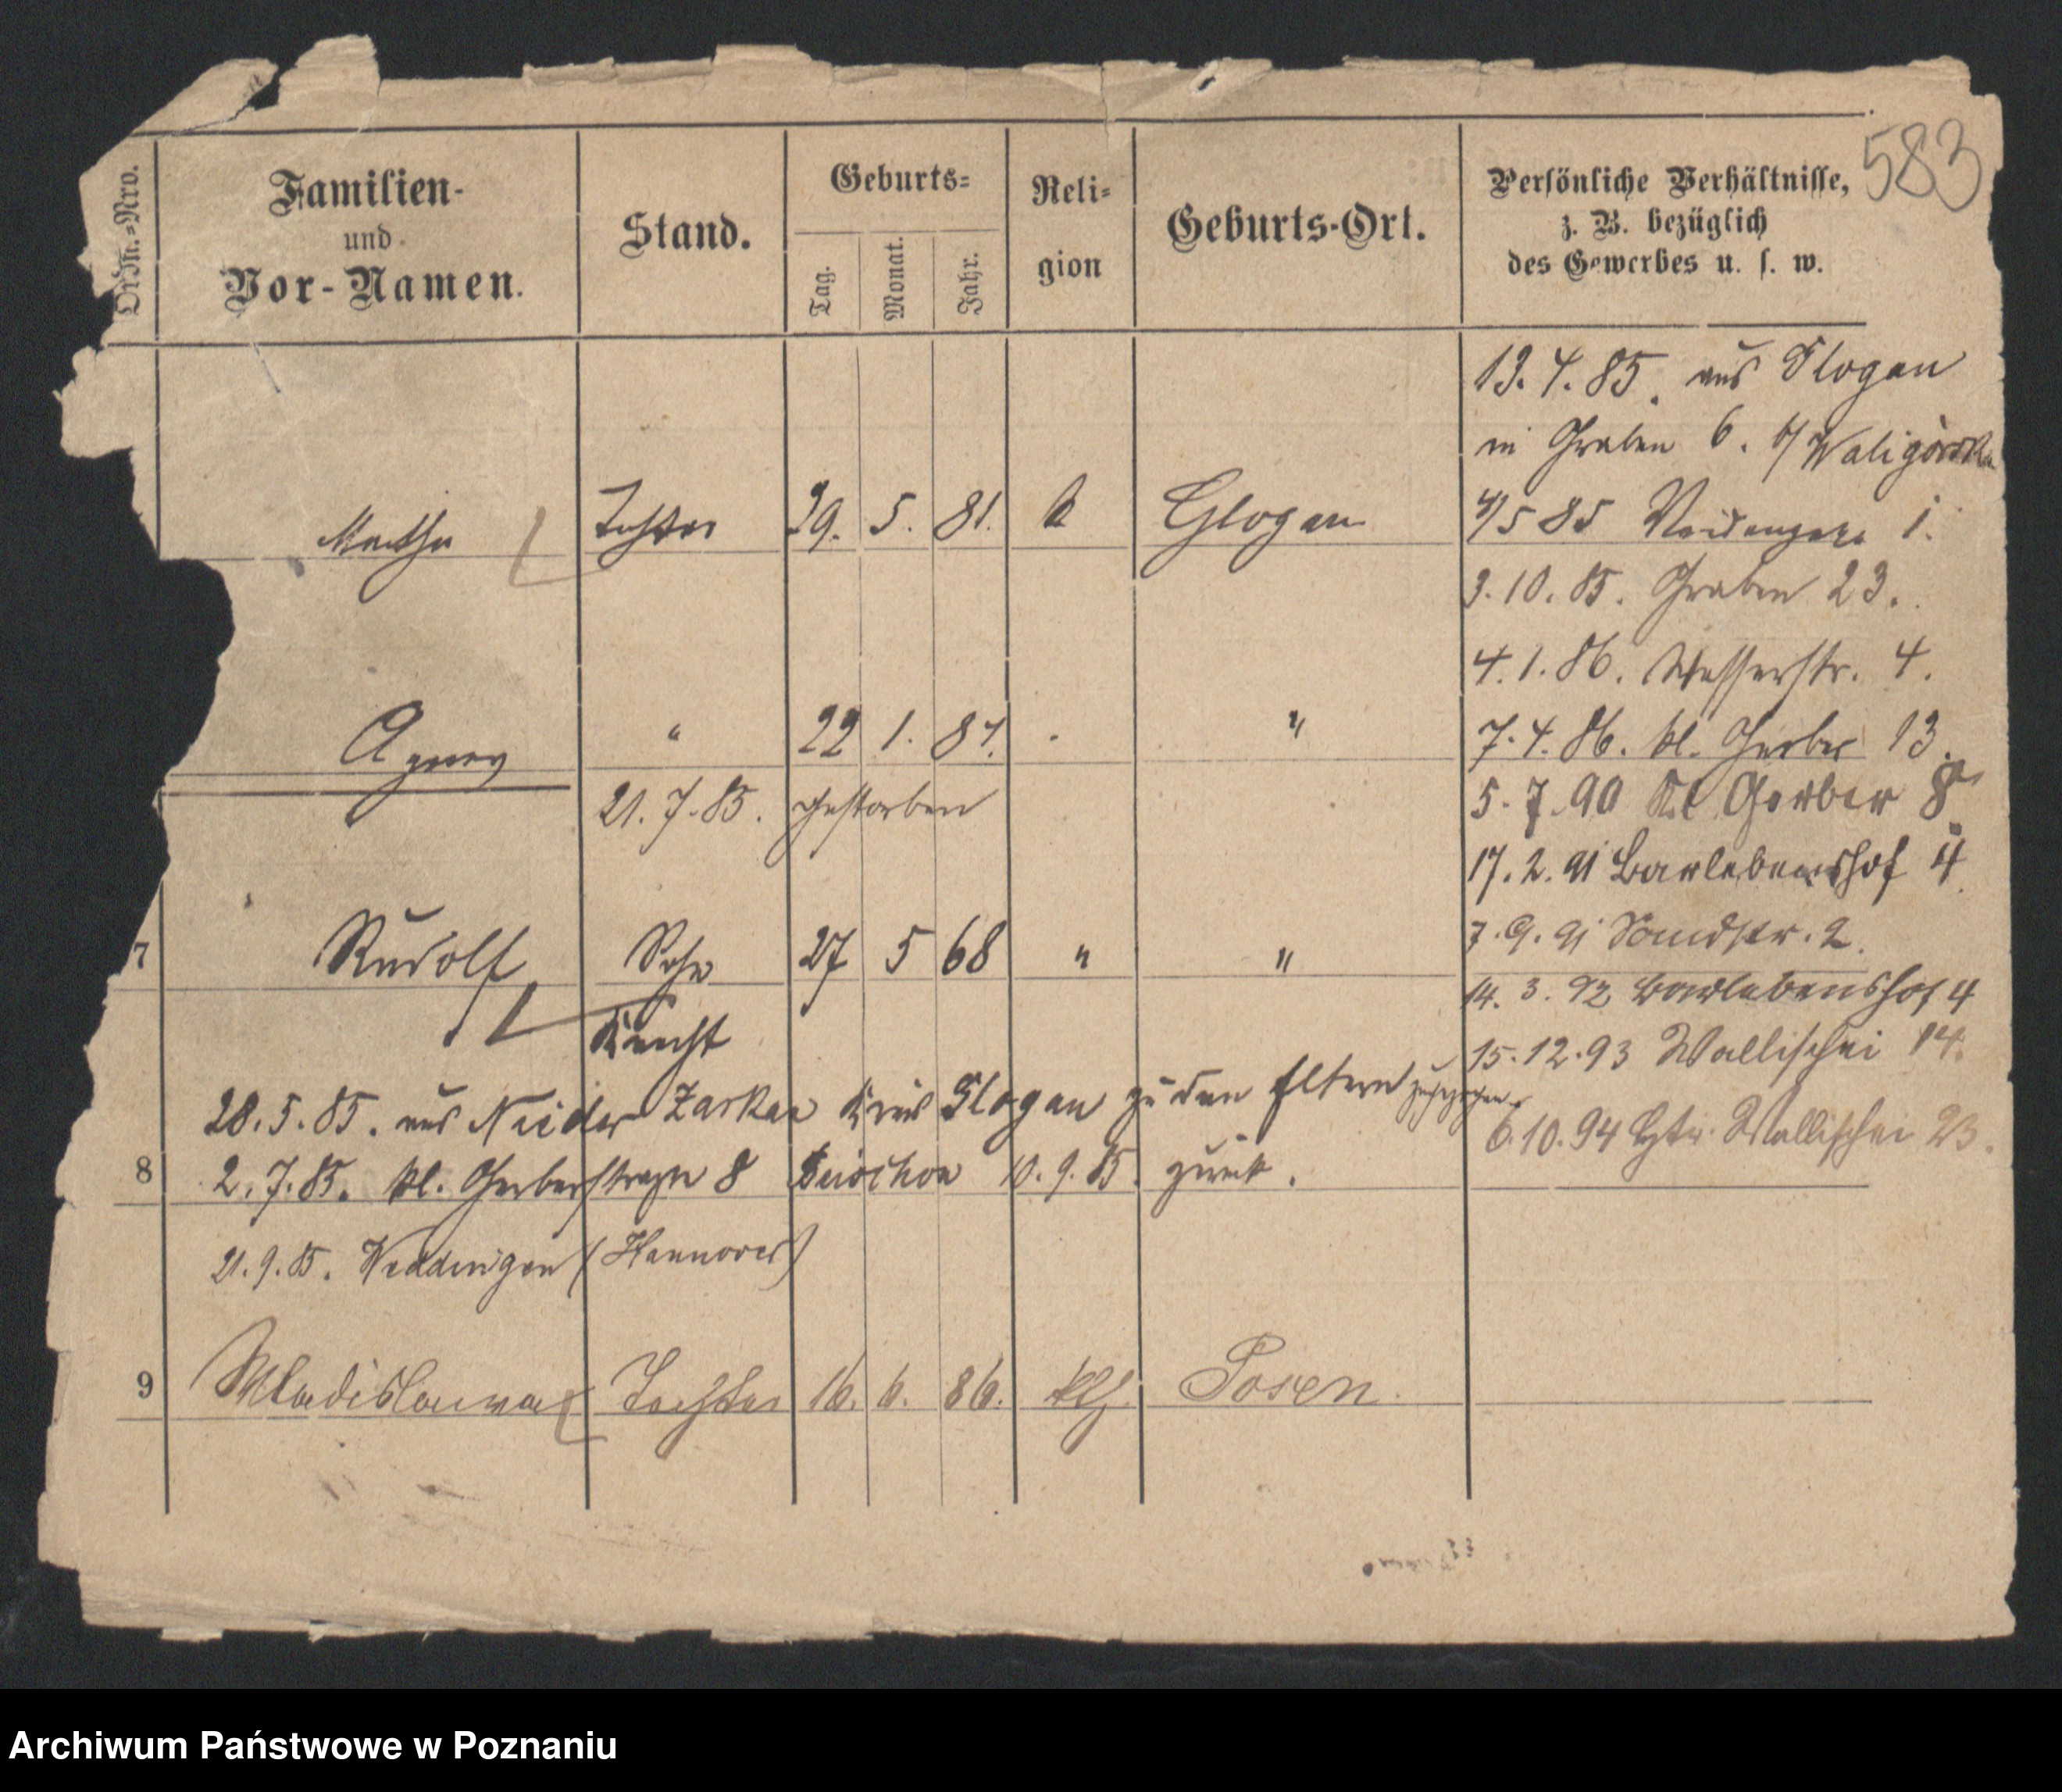 583
Ordn.-Nro.
Familien-
und
Vor-Namen.
Stand.
Geburts-
Tag.
Monat.
Jahr.
Reli-
gion
Geburts-Ort.
Persönliche Verhältnisse,
z. B. bezüglich
des Gewerbes u. s. w.
13. 4. 85. aus Glogau
in Graben 6. b/ Waligorska
Martha Tochter 29. 5. 81. k Glogau
4/5 85 1.
3. 10. 85. Graben 23.
4. 1. 86. Wasserstr. 4.
Agnes " 22 1. 84. " "
7. 4. 86. kl. Gerber 13.
21. 7. 85. gestorben
5. 7. 90 Kl Gerber 8
17. 2. 91 Barlebenshof 4
7 Rudolf Sohn 27 5 68 " "
7. 9. 91 Sandstr. 2.
14. 3. 92 Barlebenshof 4
Knecht
15. 12. 93 Wallischei 14.
28. 5. 85. aus Nieder Zarkau Kreis Glogau zu den Eltern zugezogen.
6. 10. 94 Wallischei 23.
8 2. 7. 85. kl. Gerberstraße 8 10. 9. 85. zurück.
21. 9. 85. Weddingen (Hannover)
9 Wladislawa Tochter 16. 6. 86. kth. Posen.
Archiwum Państwowe w Poznaniu